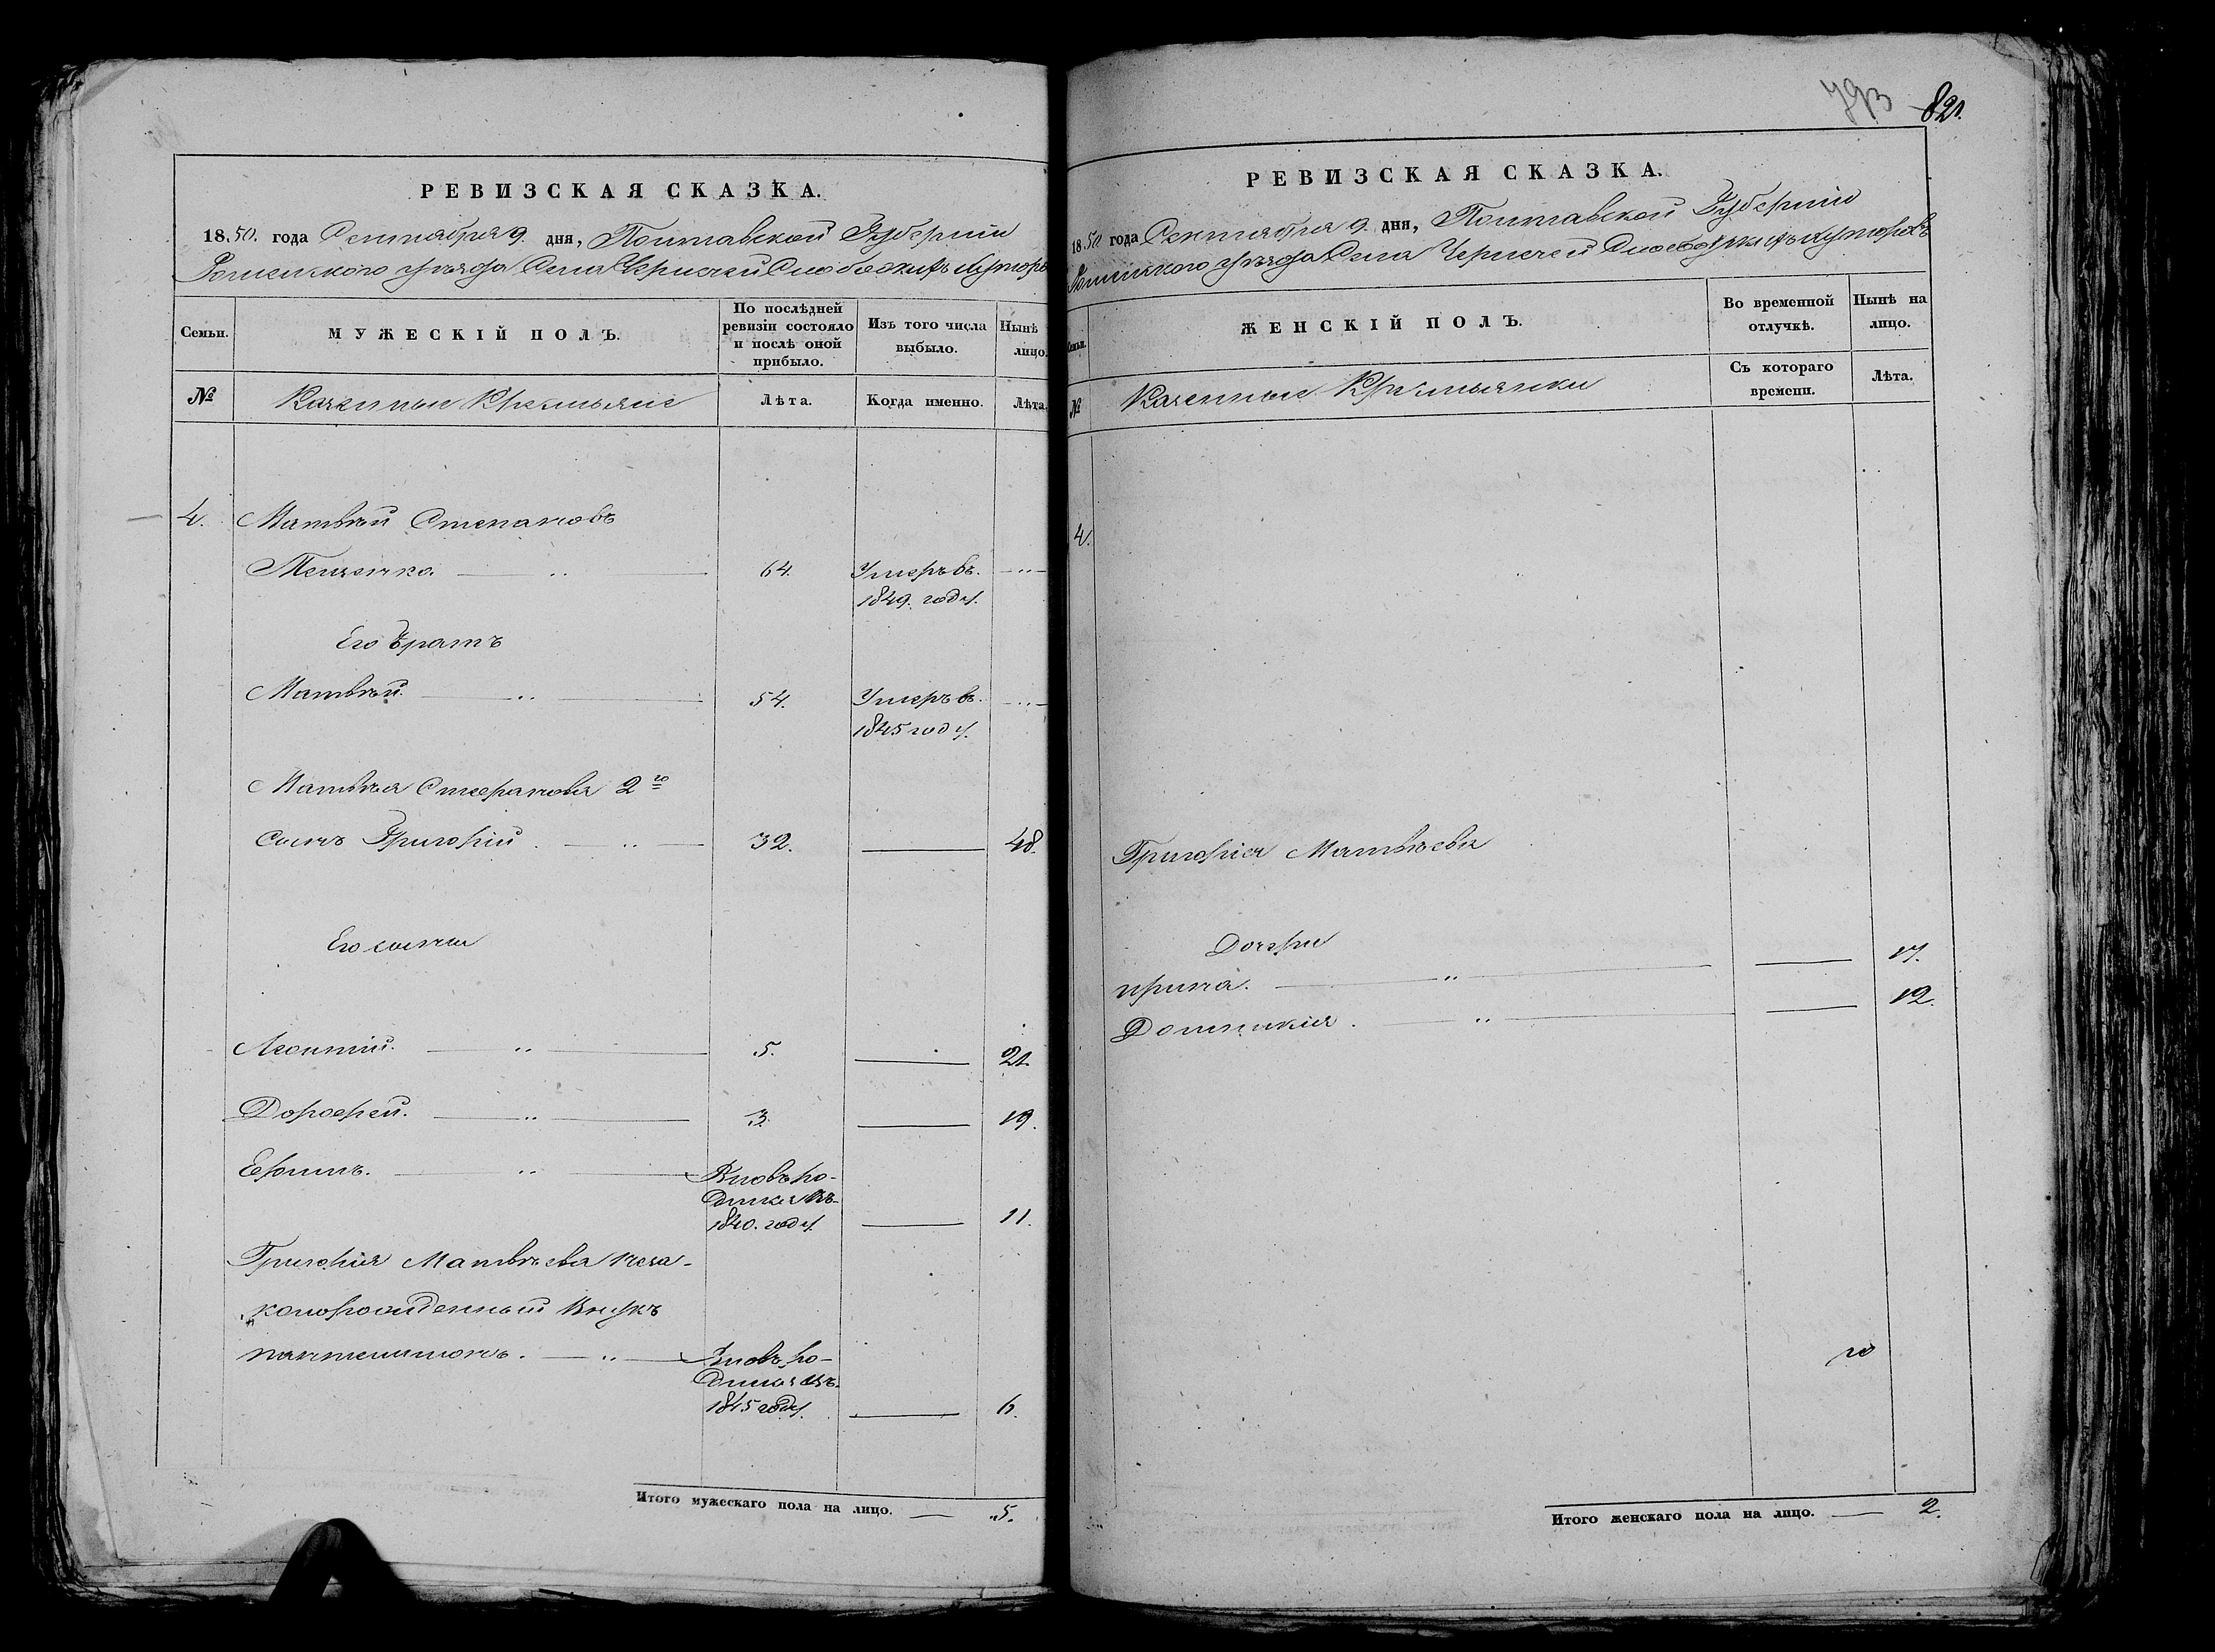 РЕВИЗСКАЯ СКАЗКА.
1850. года Сентября 9. дня, Полтавской Губернии
Роменского уѣзда Села Чернечей Слободскихъ Хуторо
Семьи.
МУЖЕСКІЙ ПОЛЪ.
По послѣдней ревизіи состояло и послѣ оной прибыло.
Изъ того числа выбыло.
Нынѣ лицо.
№
Казенные Крестьяне
Лѣта.
Когда именно.
Лѣта
4. Матвѣй Степановъ
64. Умеръ въ
1849. году.
Его Братъ
Матвѣй. 54. Умеръ въ
1845 году.
Матвѣя Степанова 2го
сынъ Григорій. 32. 48.
Его сыны
Леонтій. 5. 21.
Дорофей. 3. 19.
Ефимъ. Вновь ро-
дился въ
1840. году. 11.
Григорія Матвѣева неза-
конорожденный внукъ
пантелимонъ. Вновь ро-
дился въ
1845 году. 6.
Итого мужескаго пола на лицо. 5.
793 821.
РЕВИЗСКАЯ СКАЗКА.
1850 года Сентября 9. дня, Полтавской Губерніи
Роменского уѣзда Села Чернечей Слободскихъ Хуторовъ
Семьи.
ЖЕНСКІЙ ПОЛЪ.
Во временной отлучкѣ.
Нынѣ на лицо.
№
Казенные Крестьянки
Съ котораго времени.
Лѣта.
4.
Григорія Матвѣева
Дочери
ирина. 17.
Домникія. 12.
Итого женскаго пола на лицо. 2.